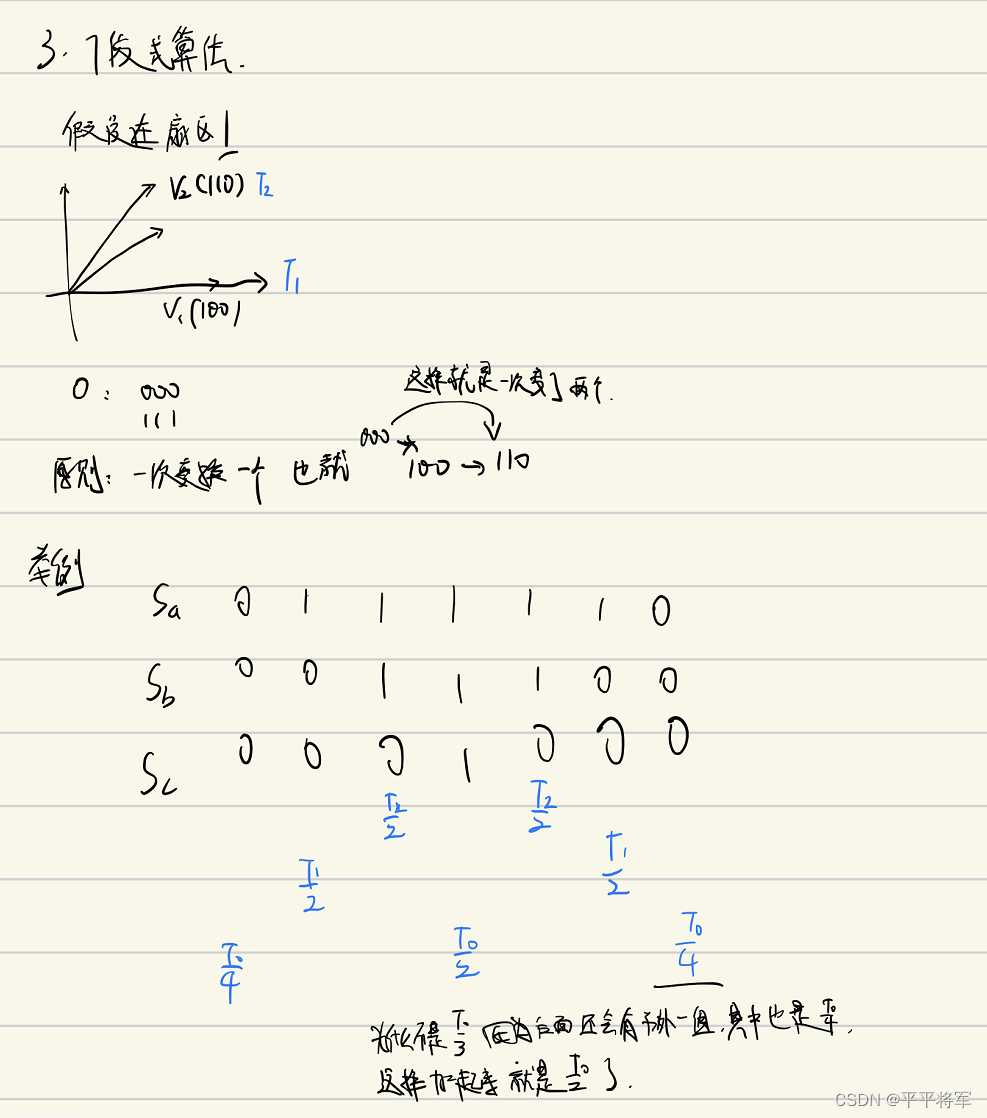 3. 7段式算法.
假设在扇区1
V₂(110) T₂
T₁
V₁(100)
0: 000
111
这样就是一次变了两个.
000 → 100 → 110
原则: 一次变换一个 也就
举例
Sa 0 1 1 1 1 1 0
Sb 0 0 1 1 1 0 0
Sc 0 0 0 1 0 0 0
T₂/2 T₂/2
T₁/2 T₁/2
T₀/4 T₀/2 T₀/4
为什么不是T₀/3 因为后面还会有另外一周,其中也是T₀/4,
这样加起来就是T₀/2了.
CSDN @平平将军